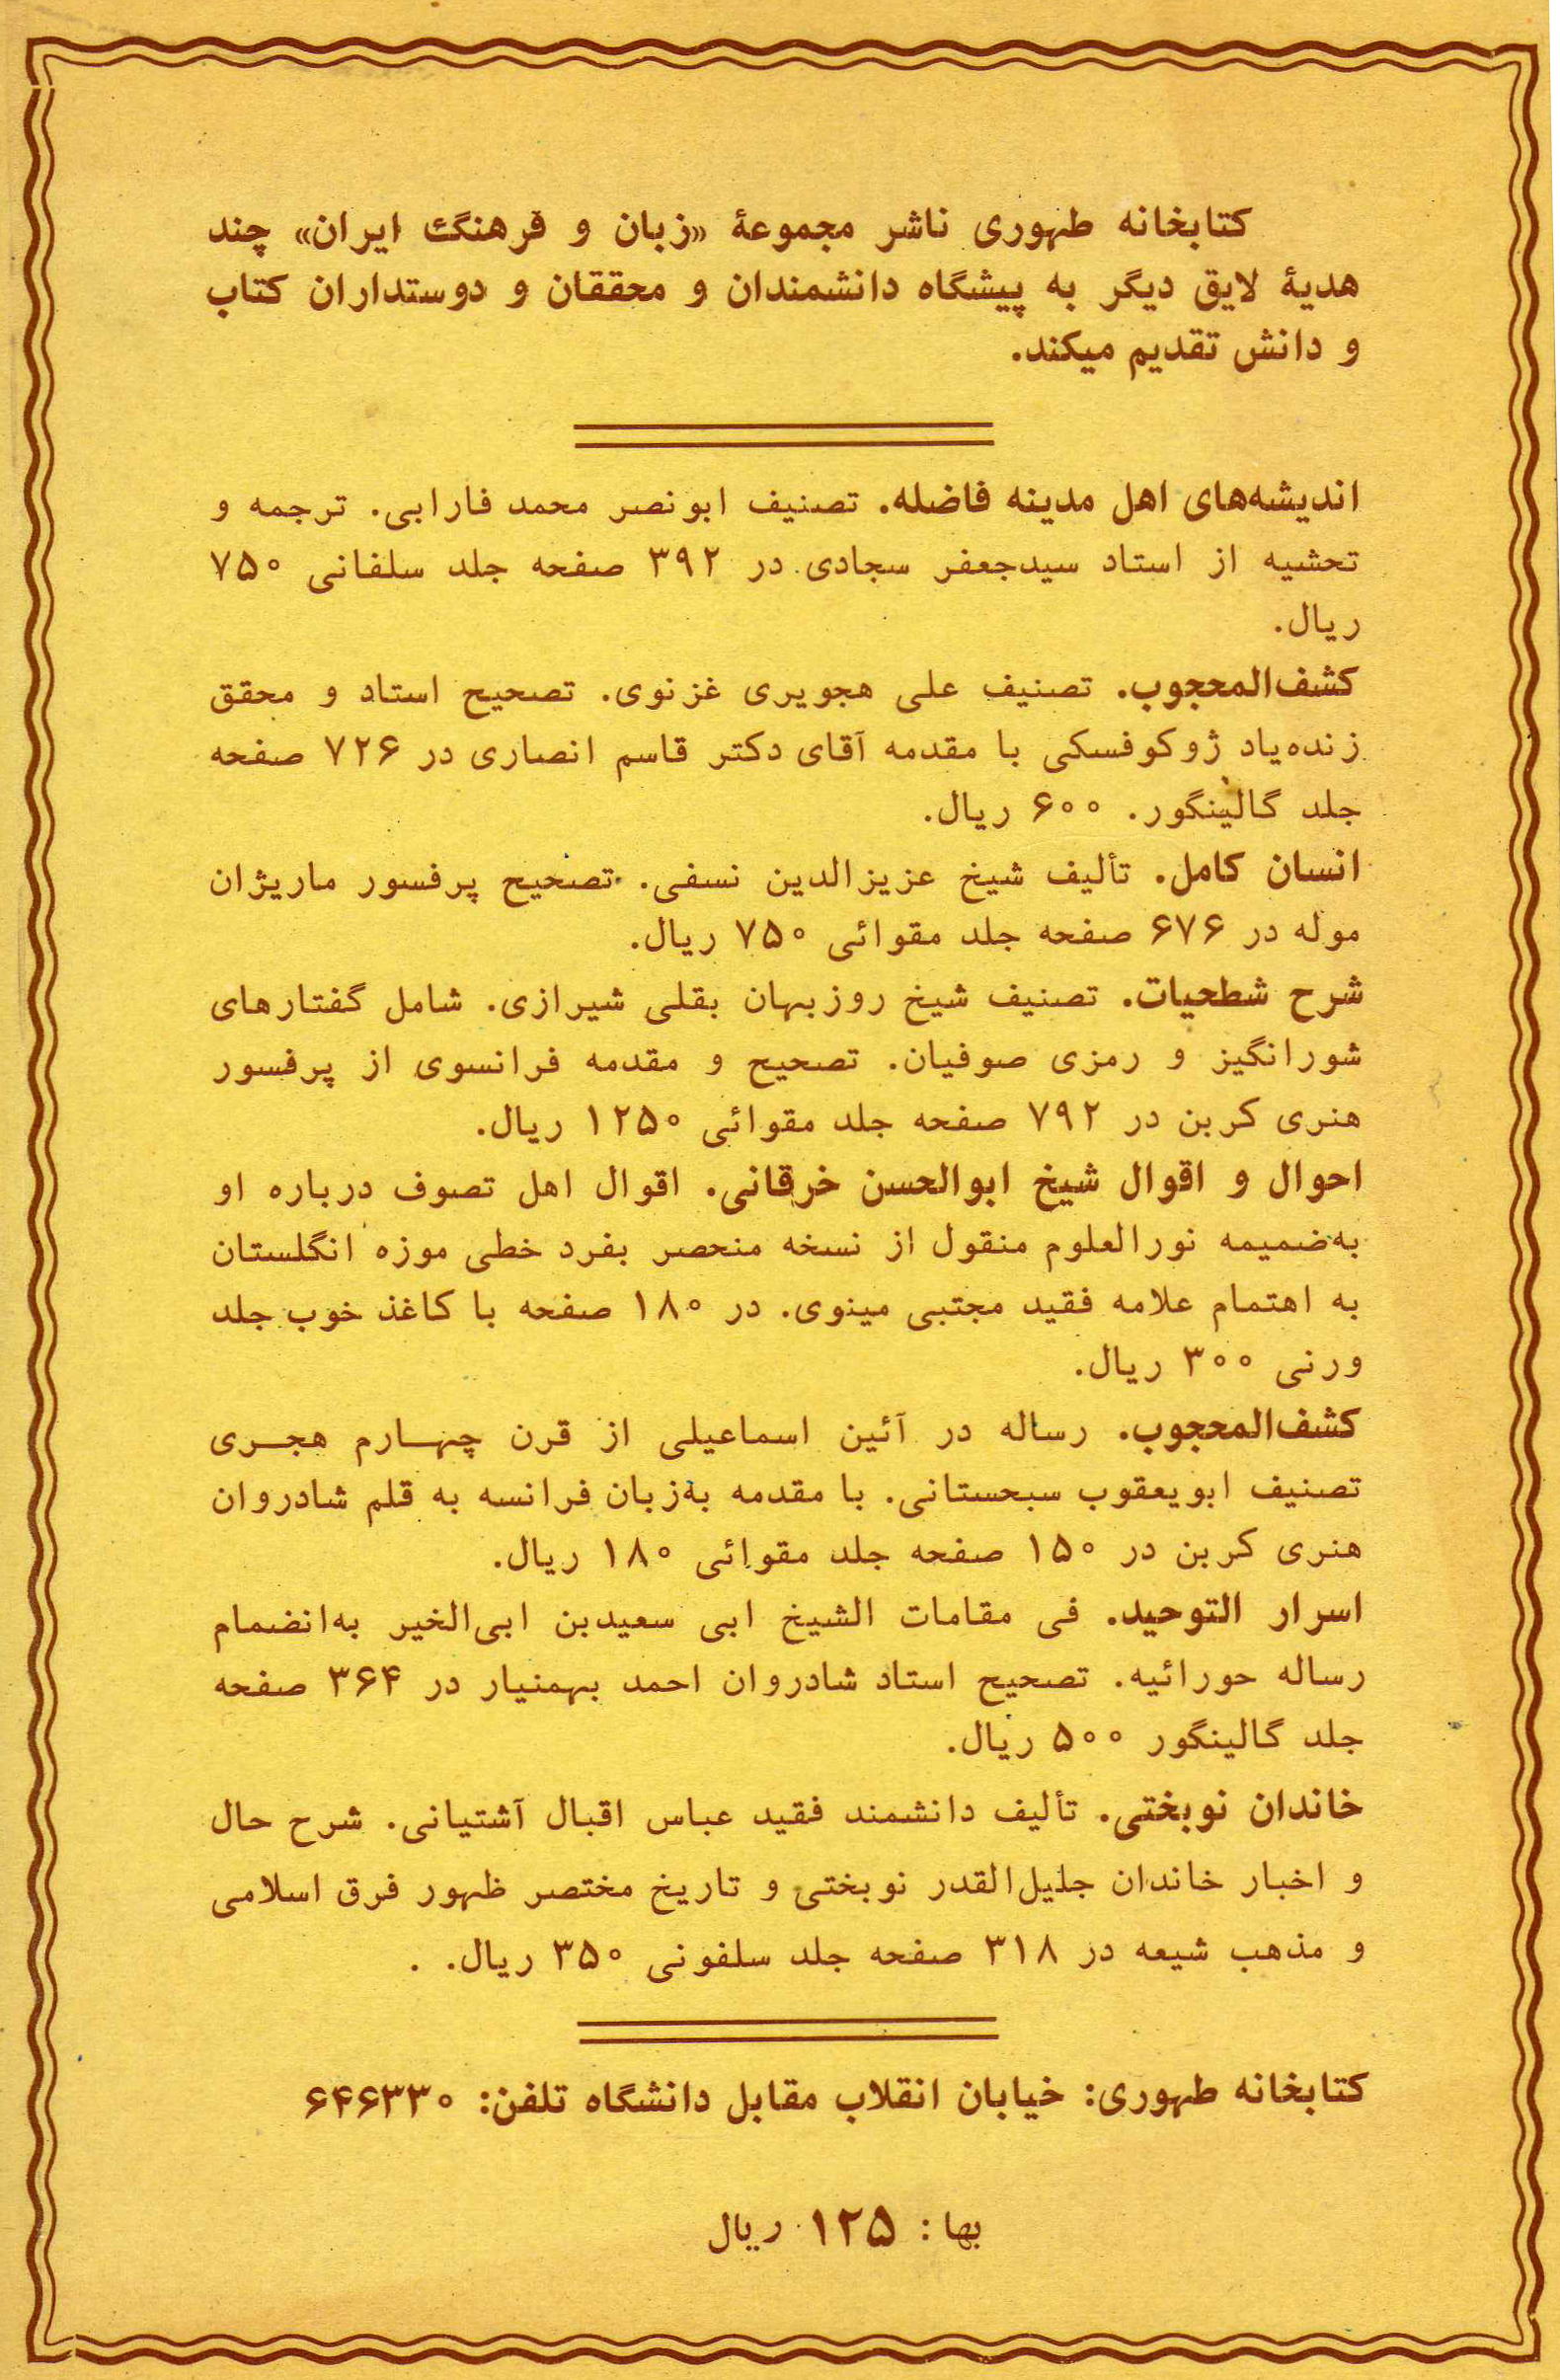 کتابخانه طهوری ناشر مجموعهٔ «زبان و فرهنگ ایران» چند
هدیهٔ لایق دیگر به پیشگاه دانشمندان و محققان و دوستداران کتاب
و دانش تقدیم میکند.
اندیشه‌های اهل مدینه فاضله. تصنیف ابونصر محمد فارابی. ترجمه و
تحشیه از استاد سیدجعفر سجادی در ۳۹۲ صفحه جلد سلفانی ۷۵۰
ریال.
کشف‌المحجوب. تصنیف علی هجویری غزنوی. تصحیح استاد و محقق
زنده‌یاد ژوکوفسکی با مقدمه آقای دکتر قاسم انصاری در ۷۲۶ صفحه
جلد گالینگور. ۶۰۰ ریال.
انسان کامل. تألیف شیخ عزیزالدین نسفی. تصحیح پرفسور ماریژان
موله در ۶۷۶ صفحه جلد مقوائی ۷۵۰ ریال.
شرح شطحیات. تصنیف شیخ روزبهان بقلی شیرازی. شامل گفتارهای
شورانگیز و رمزی صوفیان. تصحیح و مقدمه فرانسوی از پرفسور
هنری کربن در ۷۹۲ صفحه جلد مقوائی ۱۲۵۰ ریال.
احوال و اقوال شیخ ابوالحسن خرقانی. اقوال اهل تصوف درباره او
به‌ضمیمه نورالعلوم منقول از نسخه منحصر بفرد خطی موزه انگلستان
به اهتمام علامه فقید مجتبی مینوی. در ۱۸۰ صفحه با کاغذ خوب جلد
ورنی ۳۰۰ ریال.
کشف‌المحجوب. رساله در آئین اسماعیلی از قرن چهـارم هجـری
تصنیف ابویعقوب سبحستانی. با مقدمه به‌زبان فرانسه به قلم شادروان
هنری کربن در ۱۵۰ صفحه جلد مقوائی ۱۸۰ ریال.
اسرار التوحید. فی مقامات الشیخ ابی سعیدبن ابی‌الخیر به‌انضمام
رساله حورائیه. تصحیح استاد شادروان احمد بهمنیار در ۳۶۴ صفحه
جلد گالینگور ۵۰۰ ریال.
خاندان نوبختی. تألیف دانشمند فقید عباس اقبال آشتیانی. شرح حال
و اخبار خاندان جلیل‌القدر نوبختی و تاریخ مختصر ظهور فرق اسلامی
و مذهب شیعه در ۳۱۸ صفحه جلد سلفونی ۳۵۰ ریال.
کتابخانه طهوری: خیابان انقلاب مقابل دانشگاه تلفن: ۶۴۶۳۳۰
بها: ۱۲۵ ریال